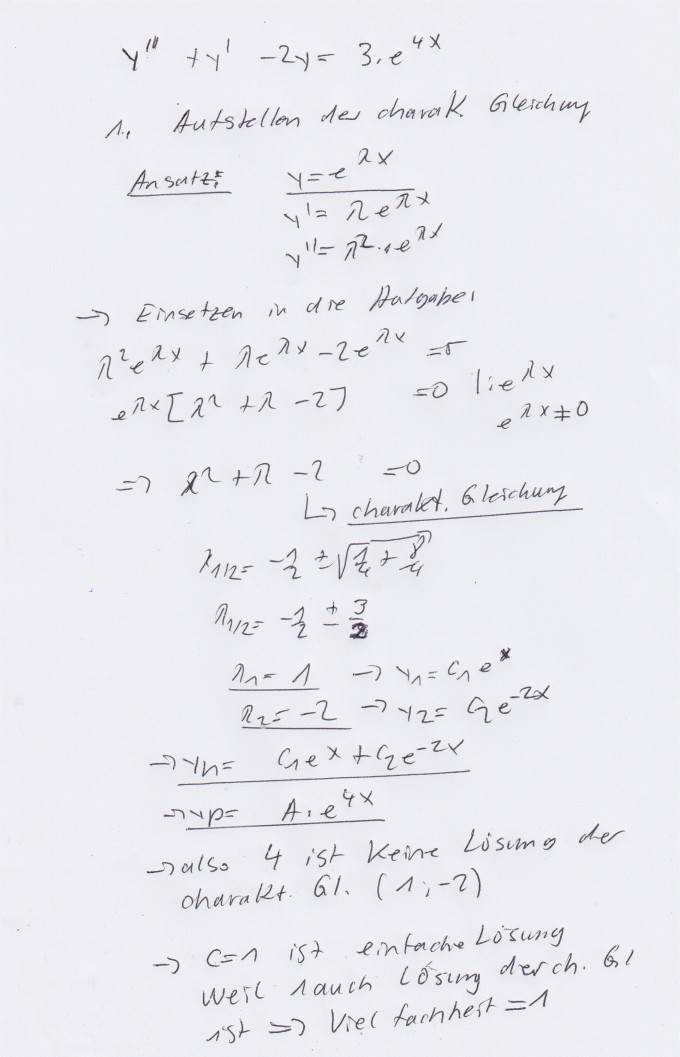 y''' + y' - 2y = 3·e^{4x}
1., Aufstellen der charak. Gleichung
Ansatz: y = e^{λx}
y' = λe^{λx}
y'' = λ²·e^{λx}
→ Einsetzen in die Aufgabe:
λ²e^{λx} + λe^{λx} - 2e^{λx} = 0
e^{λx}[λ² + λ - 2] = 0 |:e^{λx}
e^{λx} ≠ 0
=> λ² + λ - 2 = 0
↳ charakt. Gleichung
λ1/2 = -1/2 ± √(1/4 + 8/4)
λ1/2 = -1/2 ± 3/2
λ1 = 1 → y1 = C1 e^x
λ2 = -2 → y2 = C2 e^{-2x}
→ yh = C1e^x + C2e^{-2x}
→ yp = A·e^{4x}
→ also 4 ist keine Lösung der
charakt. Gl. (1; -2)
→ C=1 ist einfache Lösung
weil 1 auch Lösung der ch. Gl
ist => Vielfachheit = 1